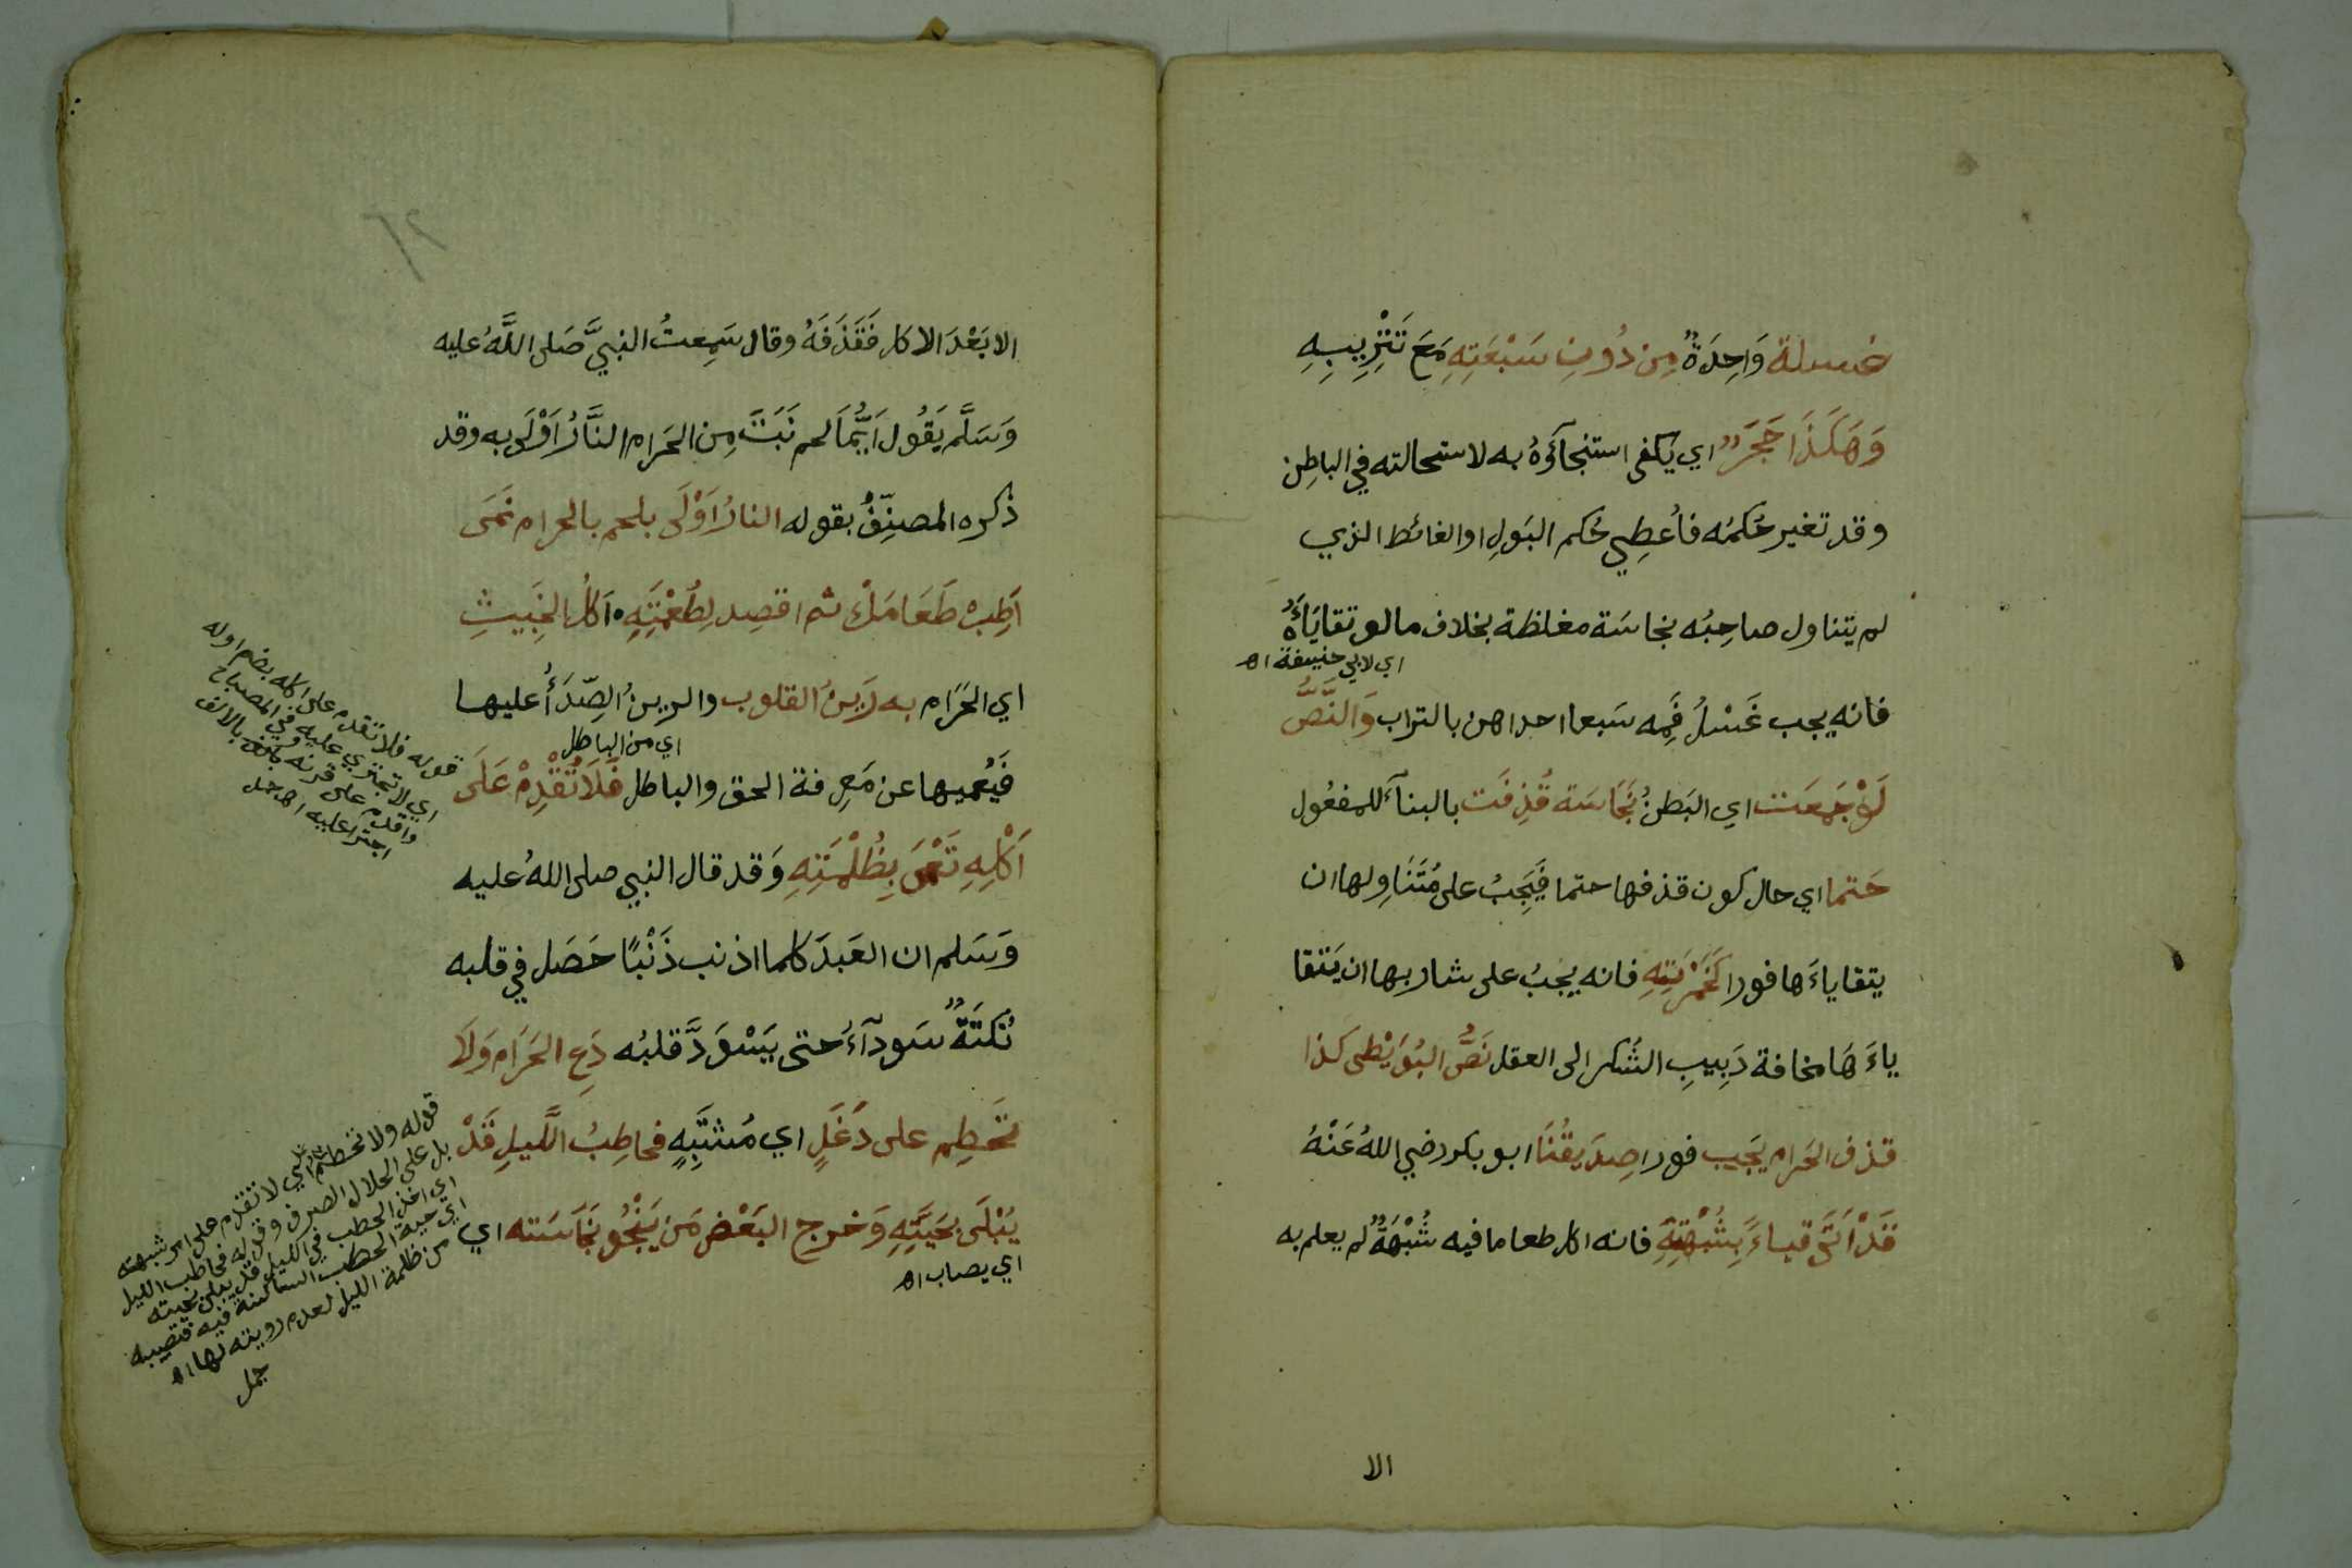 غسلة وَاحِدَةٌ مِن دُونِ سَبْعَتِهِ مَعَ تَتْرِيبِهِ
وَهَكَذَا حَجَرٌ اي يكفى استنجآؤهُ به لاستحالته في الباطِن
وقد تغير حُكمُه فأُعطِي حُكم البَولِ او الغائط الذي
لم يتناول صاحِبُه نجاسَة مغلظة بخلاف ما لو تقاياءَهُ
اي لابي حنيفة اه
فانه يجب غَسْلُ فَمِه سَبعا احداهن بالتراب وَالنَّصُّ
لَوْ جَمعَت اي البَطنُ نَجَاسَة قُذِفَت بالبنآء للمفعُول
حَتما اي حال كون قذفها حتما فَيَجِبُ على مُتَنَاوِلها ان
يتقاياءَها فورا كَخَمْرَتِهِ فانه يجبُ على شاربِها ان يَتقا
ياءَهَا مخافة دَبِيبِ السُّكر الى العقل نَصُّ البُوَيْطى كذا
قذف الحَرام يَجَيب فورا صِدَيقُنَا ابو بكر رضي اللهُ عَنْهُ
قَدْ اَتَى قياءً بِشُبْهَتِهِ فانه اكل طعاما فيه شُبْهَةٌ لم يعلم به
الا
الا بَعْدَ الاكل فَقَذَفَهُ وقال سَمِعتُ النبيَّ صَلى اللَّهُ عليه
وَسَلَّم يَقُول اَيُّمَا لحم نَبَتَ مِن الحَرام النَّارُ اَوْلَى به وقد
ذكره المصنِّفُ بقوله النارُ اَوْلَى بلحم بالحرام نَمَى
اَطِبْ طَعَامَكَ ثم اقصِد لِطُعْمَتِهِ اَكلُ الخَبِيثِ
اي الحَرَام به رَينُ القلوب والرينُ الصِّدَأُ عليها
اي من الباطل
فَيُعميها عن مَعرِفة الحق والباطل فَلَا تُقْدِمْ عَلَى
اَكْلِهِ تَعْمَى بِظُلْمَتِهِ وَقد قال النبي صلى اللهُ عليه
وَسَلم ان العَبدَ كلما اذنب ذَنْبًا حَصَل في قلبه
نُكتَةٌ سَودآءُ حتى يَسْوَدَّ قلبُه دَعِ الحَرَام وَلَا
تَحَطِم على دَغَلٍ اي مُشتَبِهٍ فحاطِبُ اللَّيلِ قَدْ
يُبْلَى بحَيَّتِهِ وَخرج البَعْض مَن يَنْجُو نَجَاسَته اي
اي يصاب اه
قوله فلا تقدم على اكله بضم اوله
اي لا تجتري عليه في المصباح
واقدم على قرنه بالالف
اجترا عليه اه جمل
قوله ولا تحطم اي لا تقدم على امر شبهته
بل على الحلال الصرف وقوله فحاطب الليل
اي اخذ الحطب في الليل قد يبلى بحيته
اي حية الحطب الساكنة فيه فتصيبه
من ظلمة الليل لعدم رويته لها اه
جمل